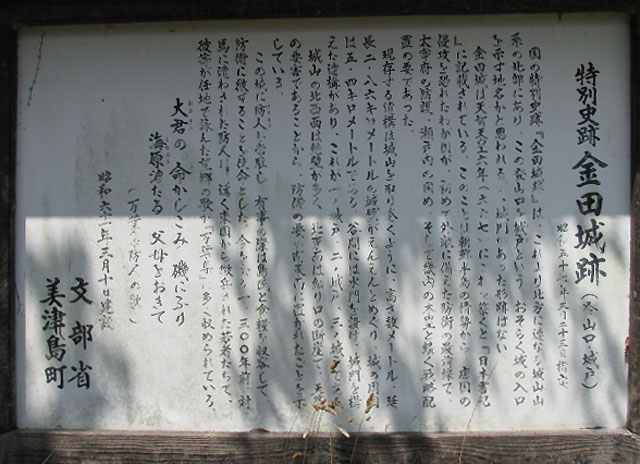 特別史跡 金田城跡（登山口・城戸）
昭和五十七年三月二十三日指定
国の特別史跡『金田城跡』は、これより北方に連なる城山山
系の北部にあり、この登山口を城戸という。おそらく城の入口
を示す地名かと思われるが、城門があった形跡はない
金田城は天智天皇六年（六六七）にこれを築くと『日本書紀
』に記載されている。このことは朝鮮半島の情勢から、唐国の
侵攻を恐れたわが国が、初めて外敵に備えた防衛の最前線で、
太宰府の防護、瀬戸内の固め、そして畿内の本塁と続く戦略配
置の要であった。
現存する遺構は城山を取り巻くように、高さ数メートル・延
長二・八六キロメートルの城壁がえんえんとめぐり、城の周囲
は五・四キロメートルである。谷間には水門を設け、城門を構
えた遺構があり、これが一ノ城戸、二ノ城戸、三ノ城戸
城山の北 西面は絶壁が多く、
の要害であることから、防衛の要
している。
この城に防人が常駐し、有事の際は島民と食糧を収容して
防衛に徹することを使命とした。今から一、三〇〇年前、対
馬に遣わされた防人は、遠く東国から徴兵された若者たちで、
彼等が任地で詠んだ望郷の歌が『万葉集』に多く収められている。
大君の 命かしこみ 磯にふり
海原渡る 父母をおきて
（万葉集 防人の歌）
昭和六十一年三月十日建設
文部省
美津島町